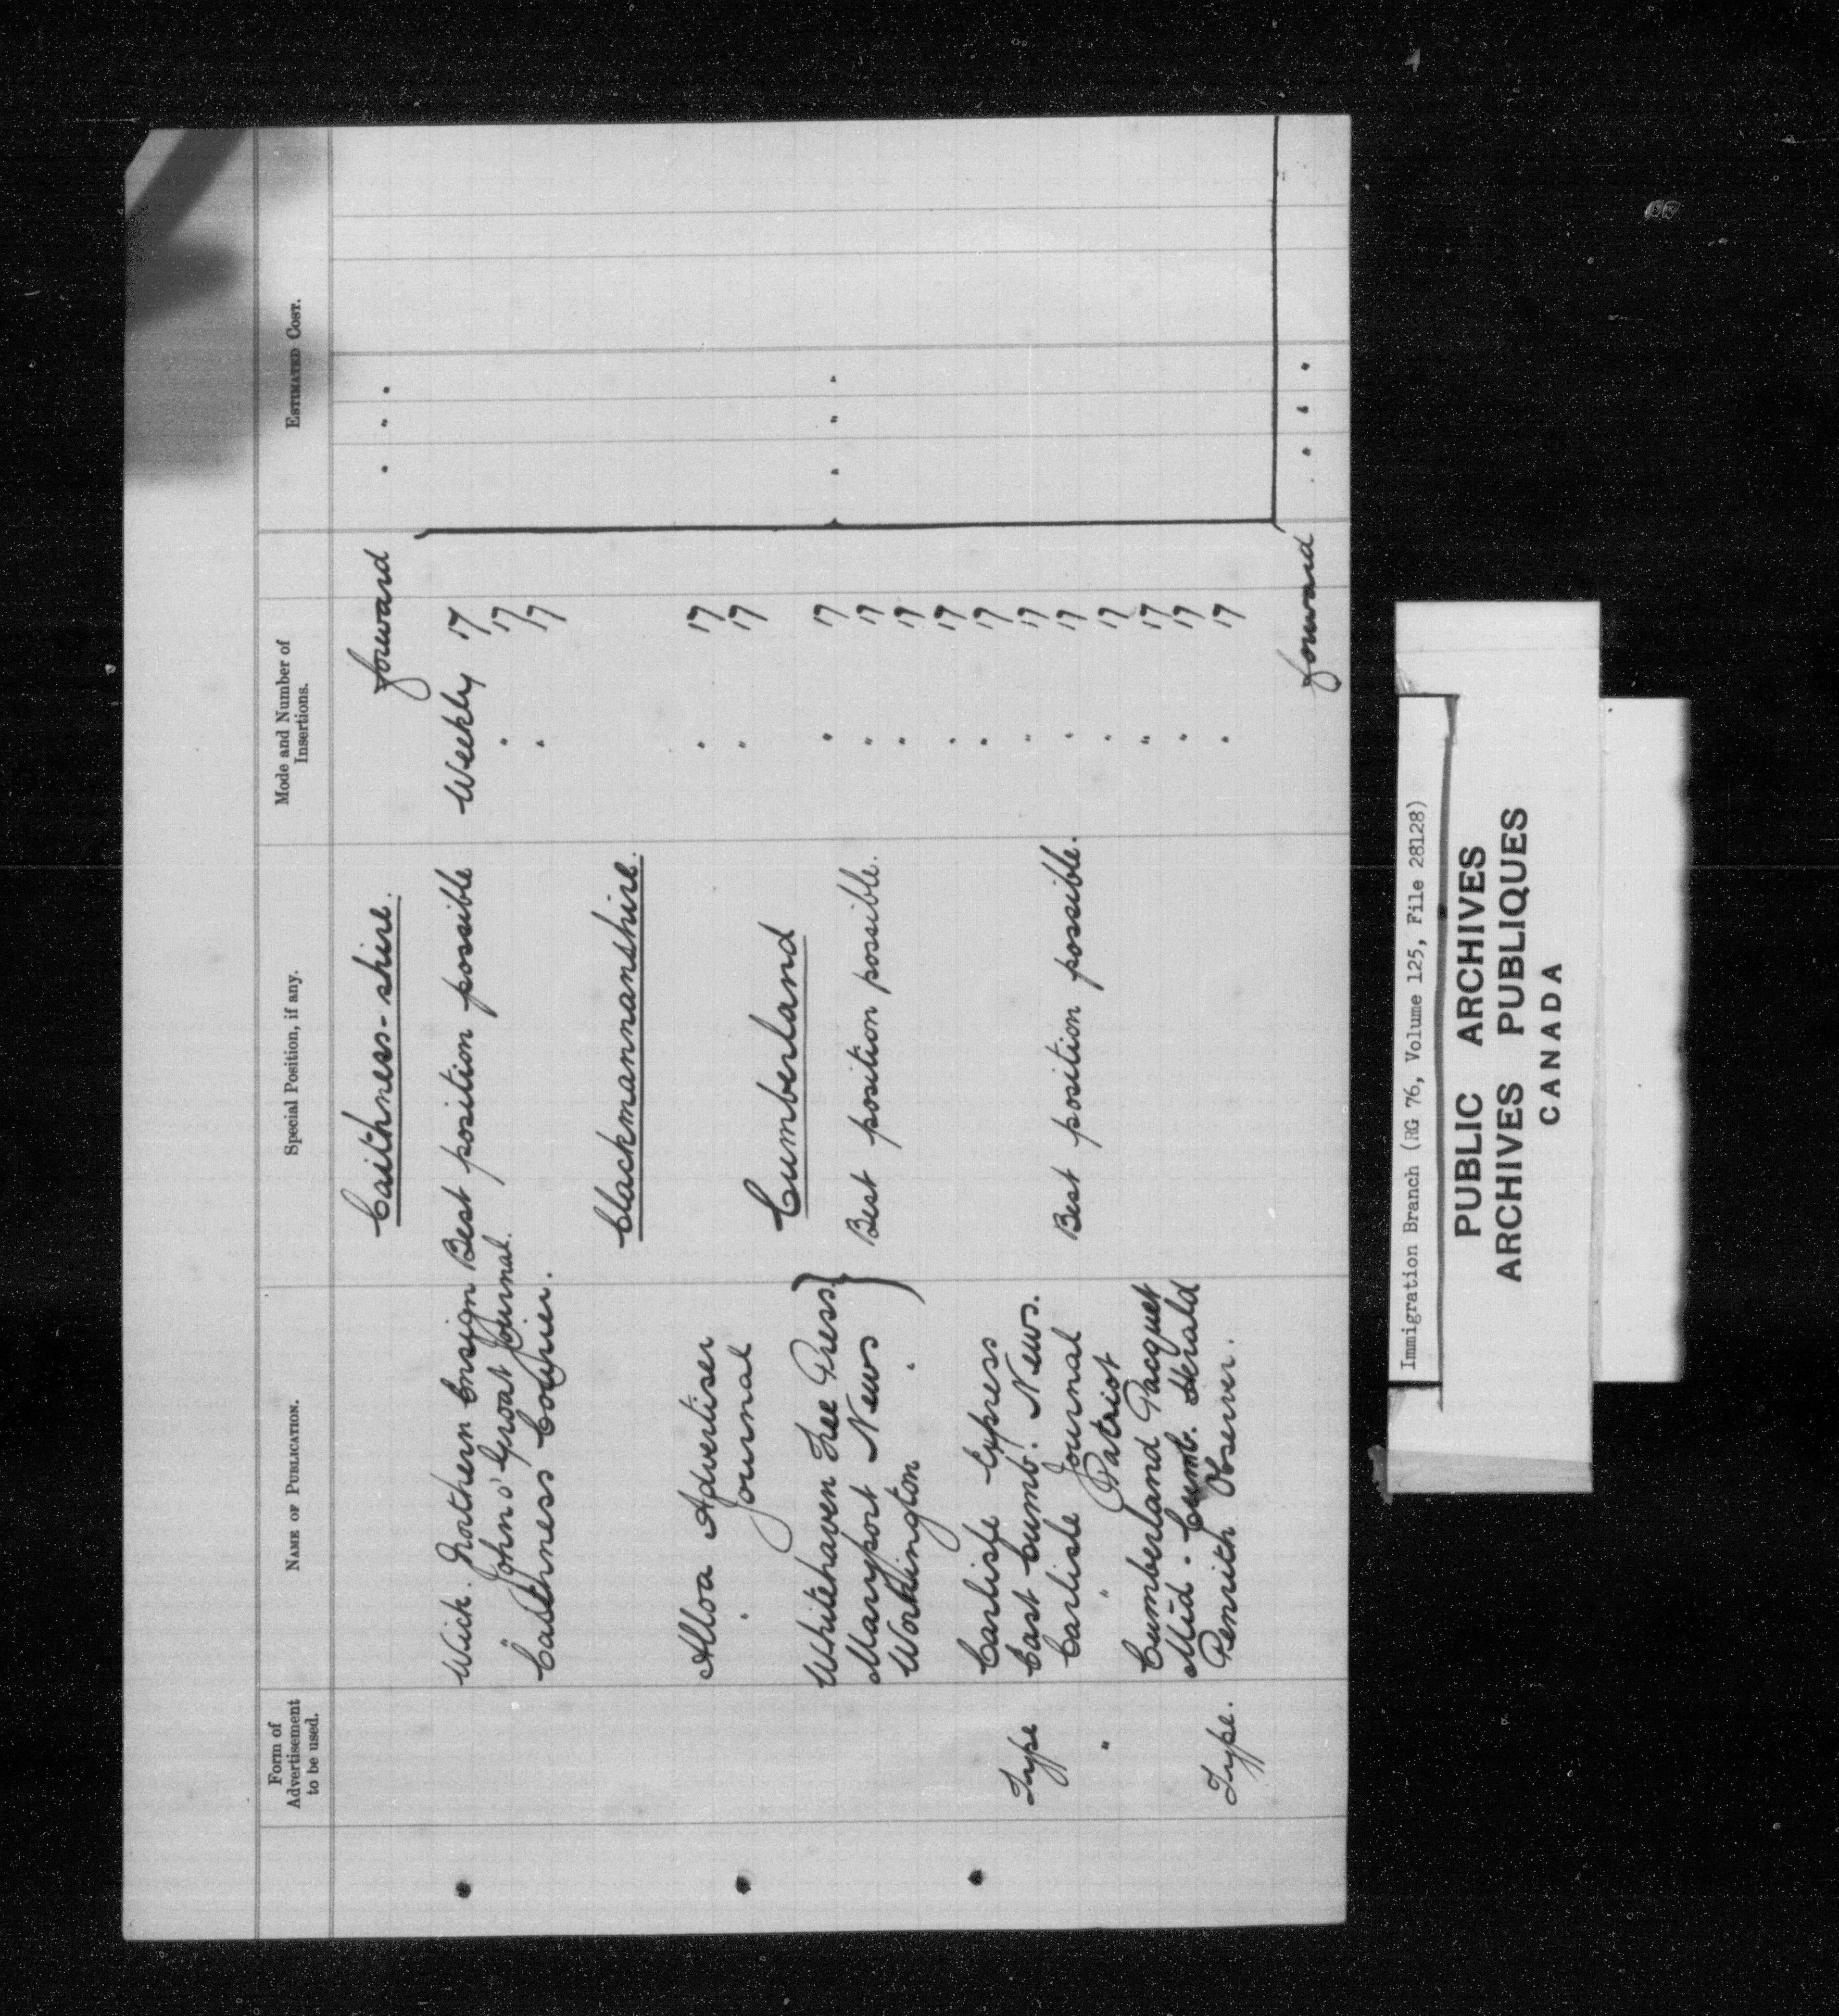 Form of Advertisement to be used. NAME OF PUBLICATION. Special Position, if any. Mode and Number of Insertions. ESTIMATED COST.
Caithness-shire. forward " " "
Wick. Northern Ensign Best position possible Weekly 17
" John o' Groat Journal. " 17
Caithness Courier. " 17
Clackmannanshire.
Alloa Advertiser " 17
" Journal " 17
Cumberland
Whitehaven Free Press } " 17 " " "
Maryport News } Best position possible. " 17
Workington " } " 17
" 17
Carlisle Express " 17
Type East Cumb. News. " 17
Carlisle Journal Best position possible. " 17
" " Patriot " 17
Cumberland Pacquet " 17
Mid. Cumb. Herald " 17
Type. Penrith Observer. " 17
forward " " "
Immigration Branch (RG 76, Volume 125, File 28128)
PUBLIC ARCHIVES
ARCHIVES PUBLIQUES
CANADA